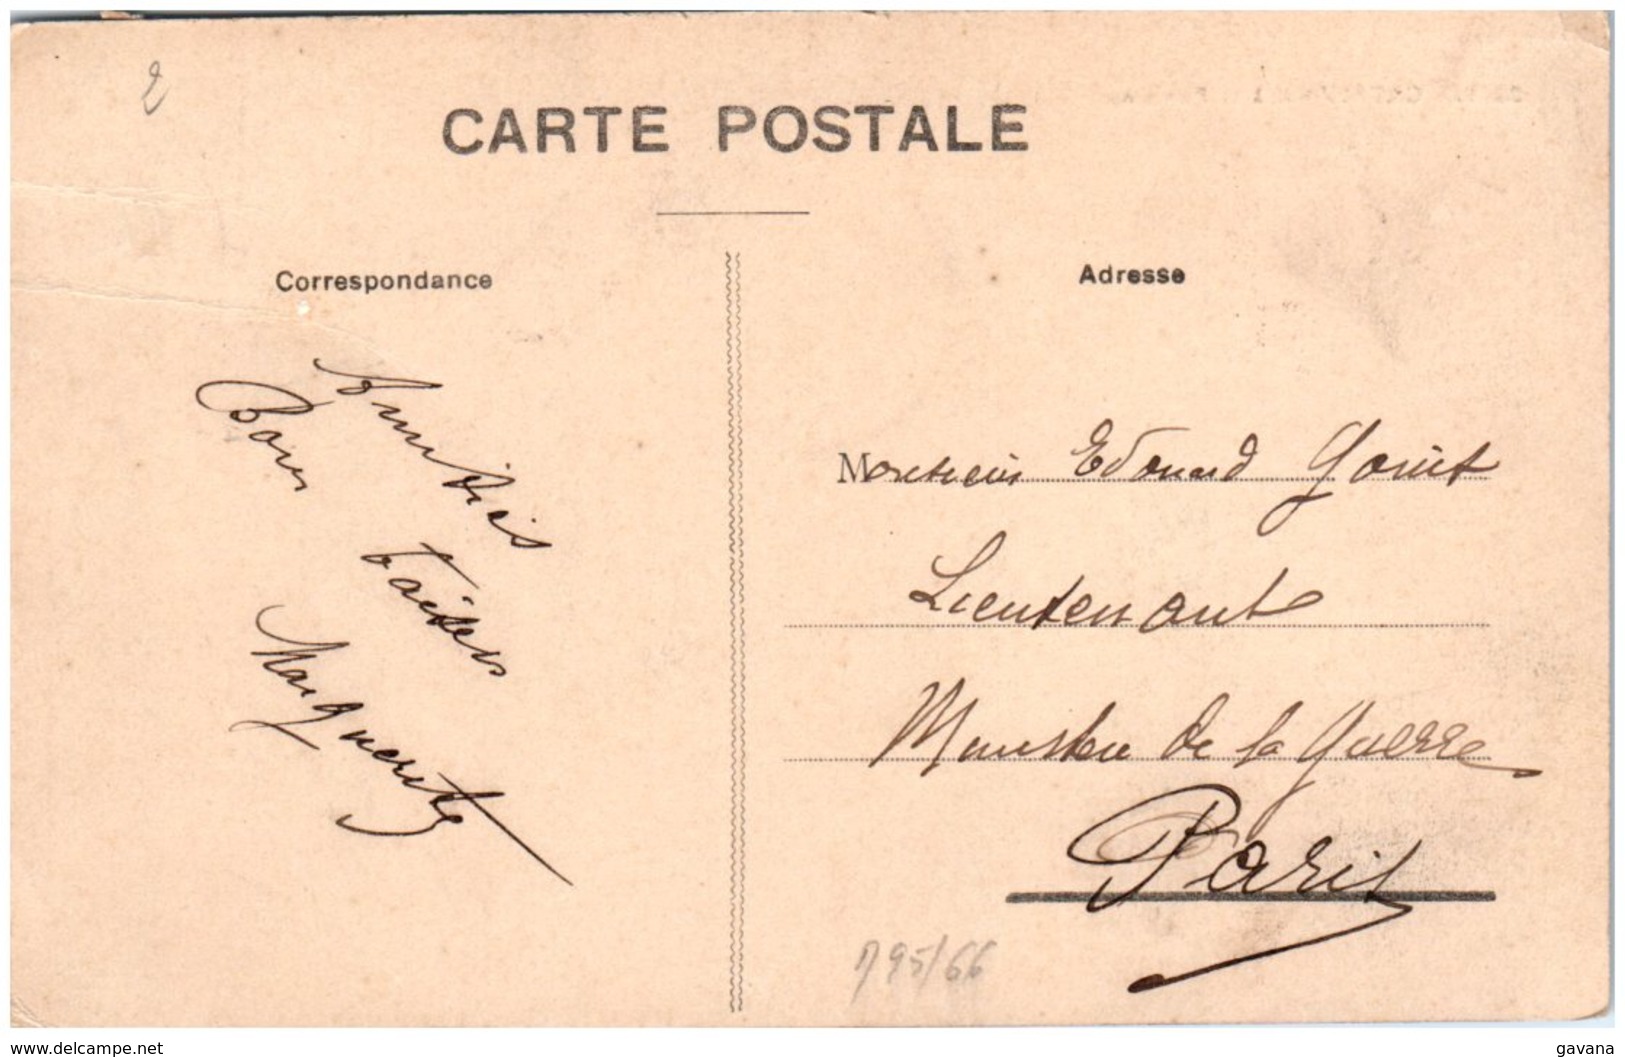 2
CARTE POSTALE
Correspondance
Adresse
Amitiés
Bons baisers
Marguerite
Monsieur Edouard
Lieutenant
Ministère de la Guerre
Paris
795/66
www.delcampe.net
gavana